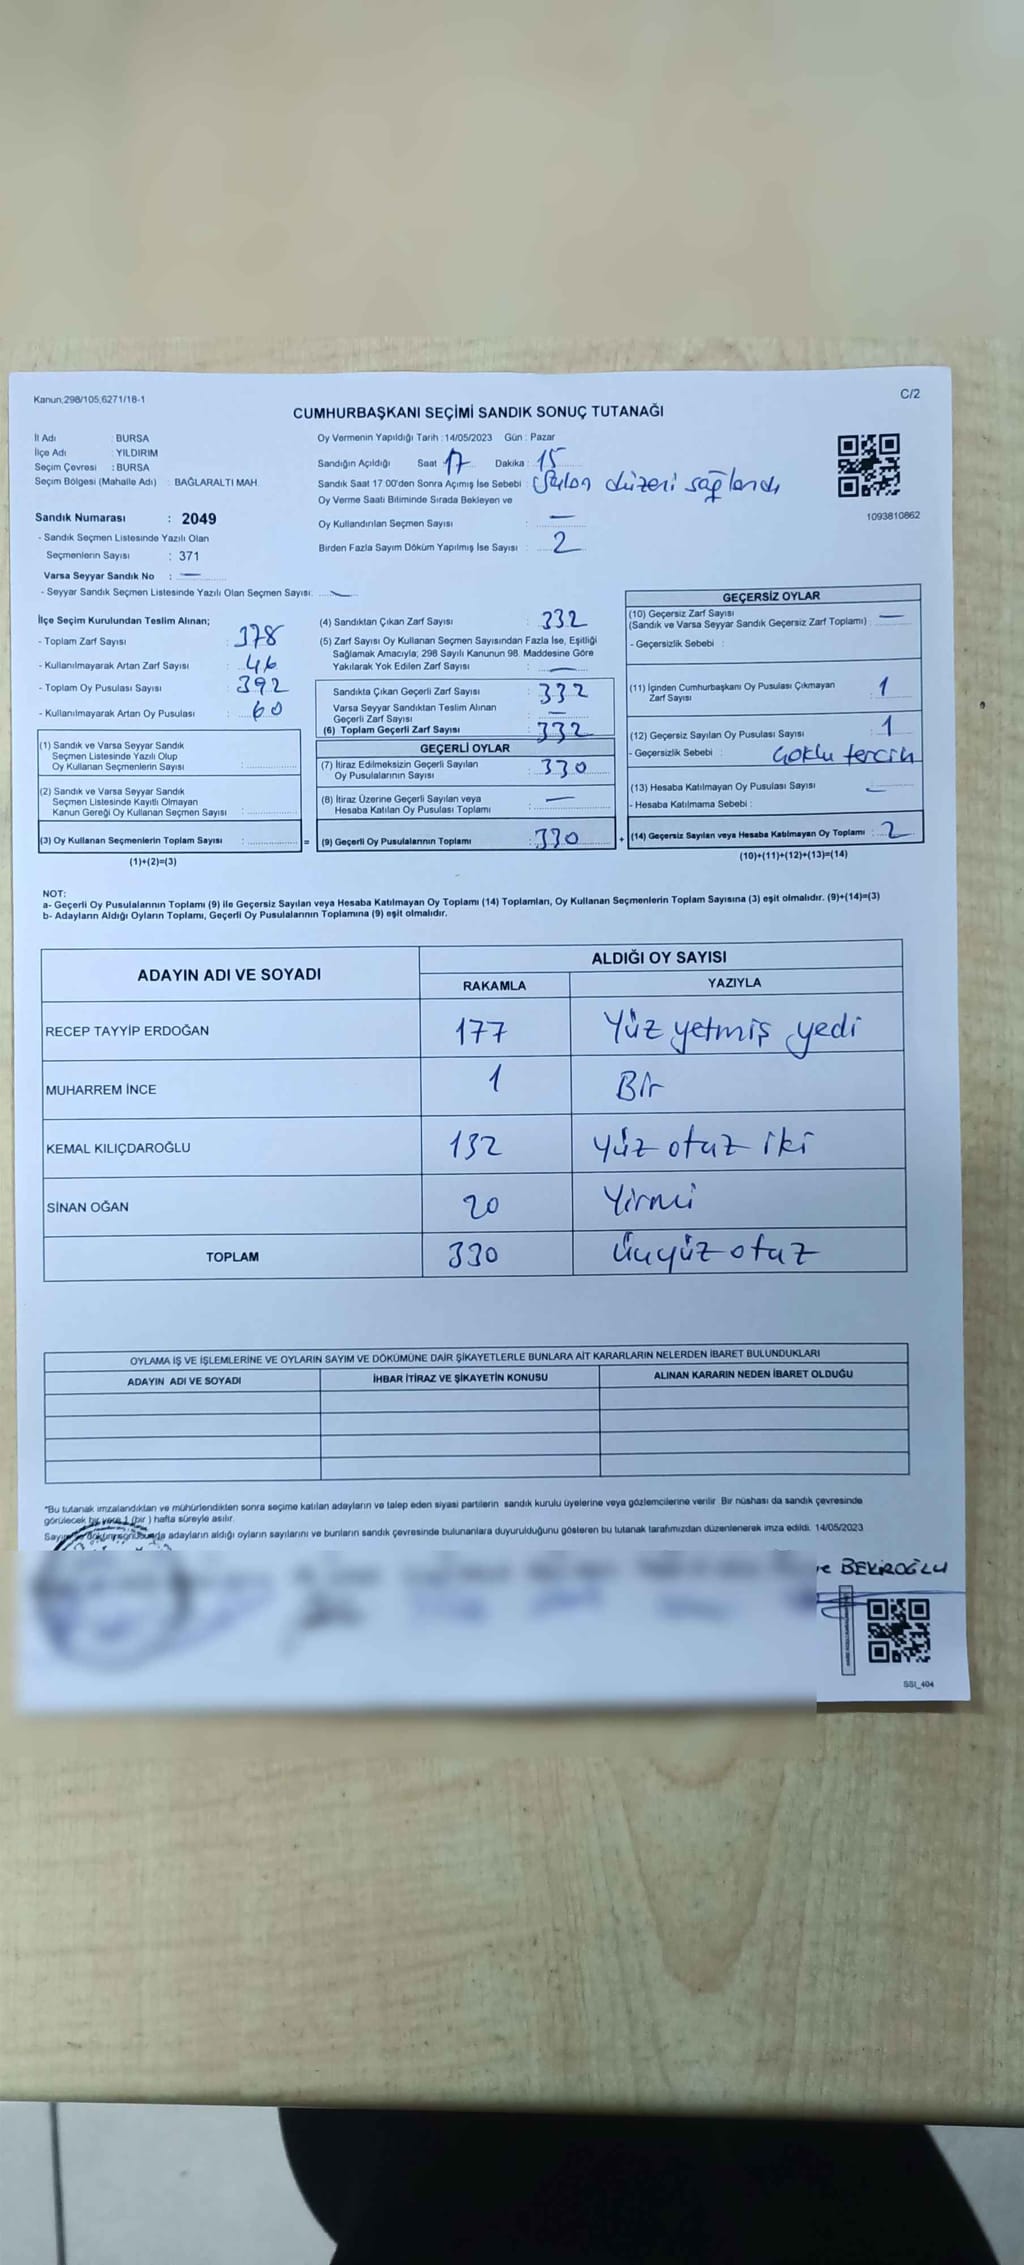 Kanun,298/105,6271/18-1
C/2
CUMHURBAŞKANI SEÇİMİ SANDIK SONUÇ TUTANAĞI
İl Adı : BURSA
İlçe Adı : YILDIRIM
Seçim Çevresi : BURSA
Seçim Bölgesi (Mahalle Adı) : BAĞLARALTI MAH.
Sandık Numarası : 2049
- Sandık Seçmen Listesinde Yazılı Olan
Seçmenlerin Sayısı : 371
Varsa Seyyar Sandık No : —
- Seyyar Sandık Seçmen Listesinde Yazılı Olan Seçmen Sayısı: —
Oy Vermenin Yapıldığı Tarih : 14/05/2023 Gün : Pazar
Sandığın Açıldığı Saat 17 Dakika : 15
Sandık Saat 17 00'den Sonra Açımış İse Sebebi : Salon düzeni sağlandı
Oy Verme Saati Bitiminde Sırada Bekleyen ve
Oy Kullandırılan Seçmen Sayısı : —
Birden Fazla Sayım Döküm Yapılmış İse Sayısı : 2
1093810862
İlçe Seçim Kurulundan Teslim Alınan;
- Toplam Zarf Sayısı : 378
- Kullanılmayarak Artan Zarf Sayısı : 46
- Toplam Oy Pusulası Sayısı : 392
- Kullanılmayarak Artan Oy Pusulası : 60
(1) Sandık ve Varsa Seyyar Sandık
Seçmen Listesinde Yazılı Olup
Oy Kullanan Seçmenlerin Sayısı :
(2) Sandık ve Varsa Seyyar Sandık
Seçmen Listesinde Kayıtlı Olmayan
Kanun Gereği Oy Kullanan Seçmen Sayısı :
(3) Oy Kullanan Seçmenlerin Toplam Sayısı : =
(1)+(2)=(3)
(4) Sandıktan Çıkan Zarf Sayısı : 332
(5) Zarf Sayısı Oy Kullanan Seçmen Sayısından Fazla İse, Eşitliği
Sağlamak Amacıyla; 298 Sayılı Kanunun 98. Maddesine Göre
Yakılarak Yok Edilen Zarf Sayısı : —
Sandıkta Çıkan Geçerli Zarf Sayısı : 332
Varsa Seyyar Sandıktan Teslim Alınan
Geçerli Zarf Sayısı : —
(6) Toplam Geçerli Zarf Sayısı : 332
GEÇERLİ OYLAR
(7) İtiraz Edilmeksizin Geçerli Sayılan
Oy Pusulalarının Sayısı : 330
(8) İtiraz Üzerine Geçerli Sayılan veya
Hesaba Katılan Oy Pusulası Toplamı : —
(9) Geçerli Oy Pusulalarının Toplamı : 330 +
GEÇERSİZ OYLAR
(10) Geçersiz Zarf Sayısı
(Sandık ve Varsa Seyyar Sandık Geçersiz Zarf Toplamı) : —
- Geçersizlik Sebebi :
(11) İçinden Cumhurbaşkanı Oy Pusulası Çıkmayan
Zarf Sayısı 1
(12) Geçersiz Sayılan Oy Pusulası Sayısı : 1
- Geçersizlik Sebebi : Çoklu tercih
(13) Hesaba Katılmayan Oy Pusulası Sayısı : —
- Hesaba Katılmama Sebebi :
(14) Geçersiz Sayılan veya Hesaba Katılmayan Oy Toplamı : 2
(10)+(11)+(12)+(13)=(14)
NOT:
a- Geçerli Oy Pusulalarının Toplamı (9) ile Geçersiz Sayılan veya Hesaba Katılmayan Oy Toplamı (14) Toplamları, Oy Kullanan Seçmenlerin Toplam Sayısına (3) eşit olmalıdır. (9)+(14)=(3)
b- Adayların Aldığı Oyların Toplamı, Geçerli Oy Pusulalarının Toplamına (9) eşit olmalıdır.
ADAYIN ADI VE SOYADI
ALDIĞI OY SAYISI
RAKAMLA YAZIYLA
RECEP TAYYİP ERDOĞAN 177 Yüz yetmiş yedi
MUHARREM İNCE 1 Bir
KEMAL KILIÇDAROĞLU 132 Yüz otuz iki
SİNAN OĞAN 20 Yirmi
TOPLAM 330 Üçyüz otuz
OYLAMA İŞ VE İŞLEMLERİNE VE OYLARIN SAYIM VE DÖKÜMÜNE DAİR ŞİKAYETLERLE BUNLARA AİT KARARLARIN NELERDEN İBARET BULUNDUKLARI
ADAYIN ADI VE SOYADI İHBAR İTİRAZ VE ŞİKAYETİN KONUSU ALINAN KARARIN NEDEN İBARET OLDUĞU
"Bu tutanak imzalandıktan ve mühürlendikten sonra seçime katılan adayların ve talep eden siyasi partilerin sandık kurulu üyelerine veya gözlemcilerine verilir. Bir nüshası da sandık çevresinde
görülecek bir yere 1 (bir ) hafta süreyle asılır.
adayların aldığı oyların sayılarını ve bunların sandık çevresinde bulunanlara duyurulduğunu gösteren bu tutanak tarafımızdan düzenlenerek imza edildi. 14/05/2023
BEKİROĞLU
SSI_404